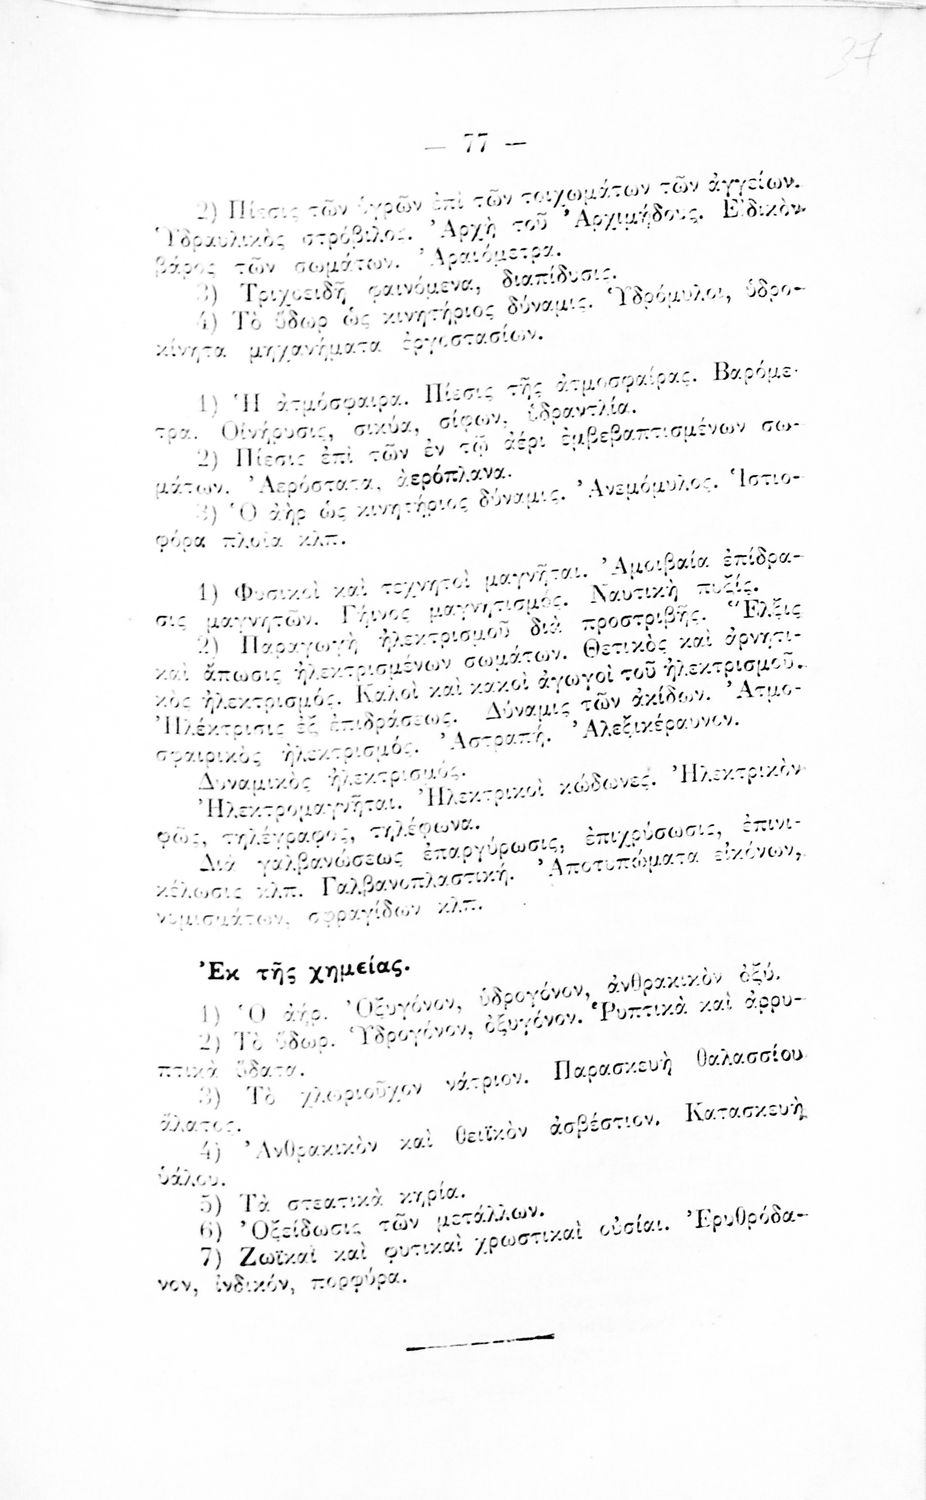 37
— 77 —
2) Πίεσις τῶν ὑγρῶν ἐπὶ τῶν τοιχωμάτων τῶν ἀγγείων.
Ὑδραυλικὸς στρόβιλος. Ἀρχὴ τοῦ Ἀρχιμήδους. Εἰδικὸν
βάρος τῶν σωμάτων. Ἀραιόμετρα.
3) Τριχοειδῆ φαινόμενα, διαπίδυσις.
4) Τὸ ὕδωρ ὡς κινητήριος δύναμις. Ὑδρόμυλοι, ὑδρο-
κίνητα μηχανήματα ἐργοστασίων.
1) Ἡ ἀτμόσφαιρα. Πίεσις τῆς ἀτμοσφαίρας. Βαρόμε-
τρα. Οἰνήρυσις, σικύα, σίφων, ὑδραντλία.
2) Πίεσις ἐπὶ τῶν ἐν τῷ ἀέρι ἐμβεβαπτισμένων σω-
μάτων. Ἀερόστατα, ἀερόπλανα.
3) Ὁ ἀὴρ ὡς κινητήριος δύναμις. Ἀνεμόμυλος. Ἱστιο-
φόρα πλοῖα κλπ.
1) Φυσικοὶ καὶ τεχνητοὶ μαγνῆται. Ἀμοιβαία ἐπίδρα-
σις μαγνητῶν. Γήινος μαγνητισμός. Ναυτικὴ πυξίς.
2) Παραγωγὴ ἠλεκτρισμοῦ διὰ προστριβῆς. Ἕλξις
καὶ ἄπωσις ἠλεκτρισμένων σωμάτων. Θετικὸς καὶ ἀρνητι-
κὸς ἠλεκτρισμός. Καλοὶ καὶ κακοὶ ἀγωγοὶ τοῦ ἠλεκτρισμοῦ.
Ἠλέκτρισις ἐξ ἐπιδράσεως. Δύναμις τῶν ἀκίδων. Ἀτμο-
σφαιρικὸς ἠλεκτρισμός. Ἀστραπή. Ἀλεξικέραυνον.
Δυναμικὸς ἠλεκτρισμός.
Ἠλεκτρομαγνῆται. Ἠλεκτρικοὶ κώδωνες. Ἠλεκτρικὸν
φῶς, τηλέγραφος, τηλέφωνα.
Διὰ γαλβανώσεως ἐπαργύρωσις, ἐπιχρύσωσις, ἐπινι-
κέλωσις κλπ. Γαλβανοπλαστική. Ἀποτυπώματα εἰκόνων,
νομισμάτων, σφραγίδων κλπ.
Ἐκ τῆς χημείας.
1) Ὁ ἀήρ. Ὀξυγόνον, ὑδρογόνον, ἀνθρακικὸν ὀξύ.
2) Τὸ ὕδωρ. Ὑδρογόνον, ὀξυγόνον. Ῥυπτικὰ καὶ ἀρρυ-
πτικὰ ὕδατα.
3) Τὸ χλωριοῦχον νάτριον. Παρασκευὴ θαλασσίου
ἅλατος.
4) Ἀνθρακικὸν καὶ θειϊκὸν ἀσβέστιον. Κατασκευὴ
ὑάλου.
5) Τὰ στεατικὰ κηρία.
6) Ὀξείδωσις τῶν μετάλλων.
7) Ζωϊκαὶ καὶ φυτικαὶ χρωστικαὶ οὐσίαι. Ἐρυθρόδα-
νον, ἰνδικόν, πορφύρα.